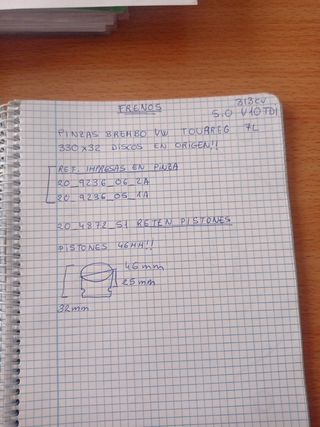 FRENOS
313CV
5.0 V10TDI
PINZAS BREMBO VW TOUAREG 7L
330x32 DISCOS EN ORIGEN!!
REF. IMPRESAS EN PINZA
20_9236_06_2A
20_9236_05_1A
20_4872_51 RETEN PISTONES
PISTONES 46MM!!
46mm
25mm
32mm